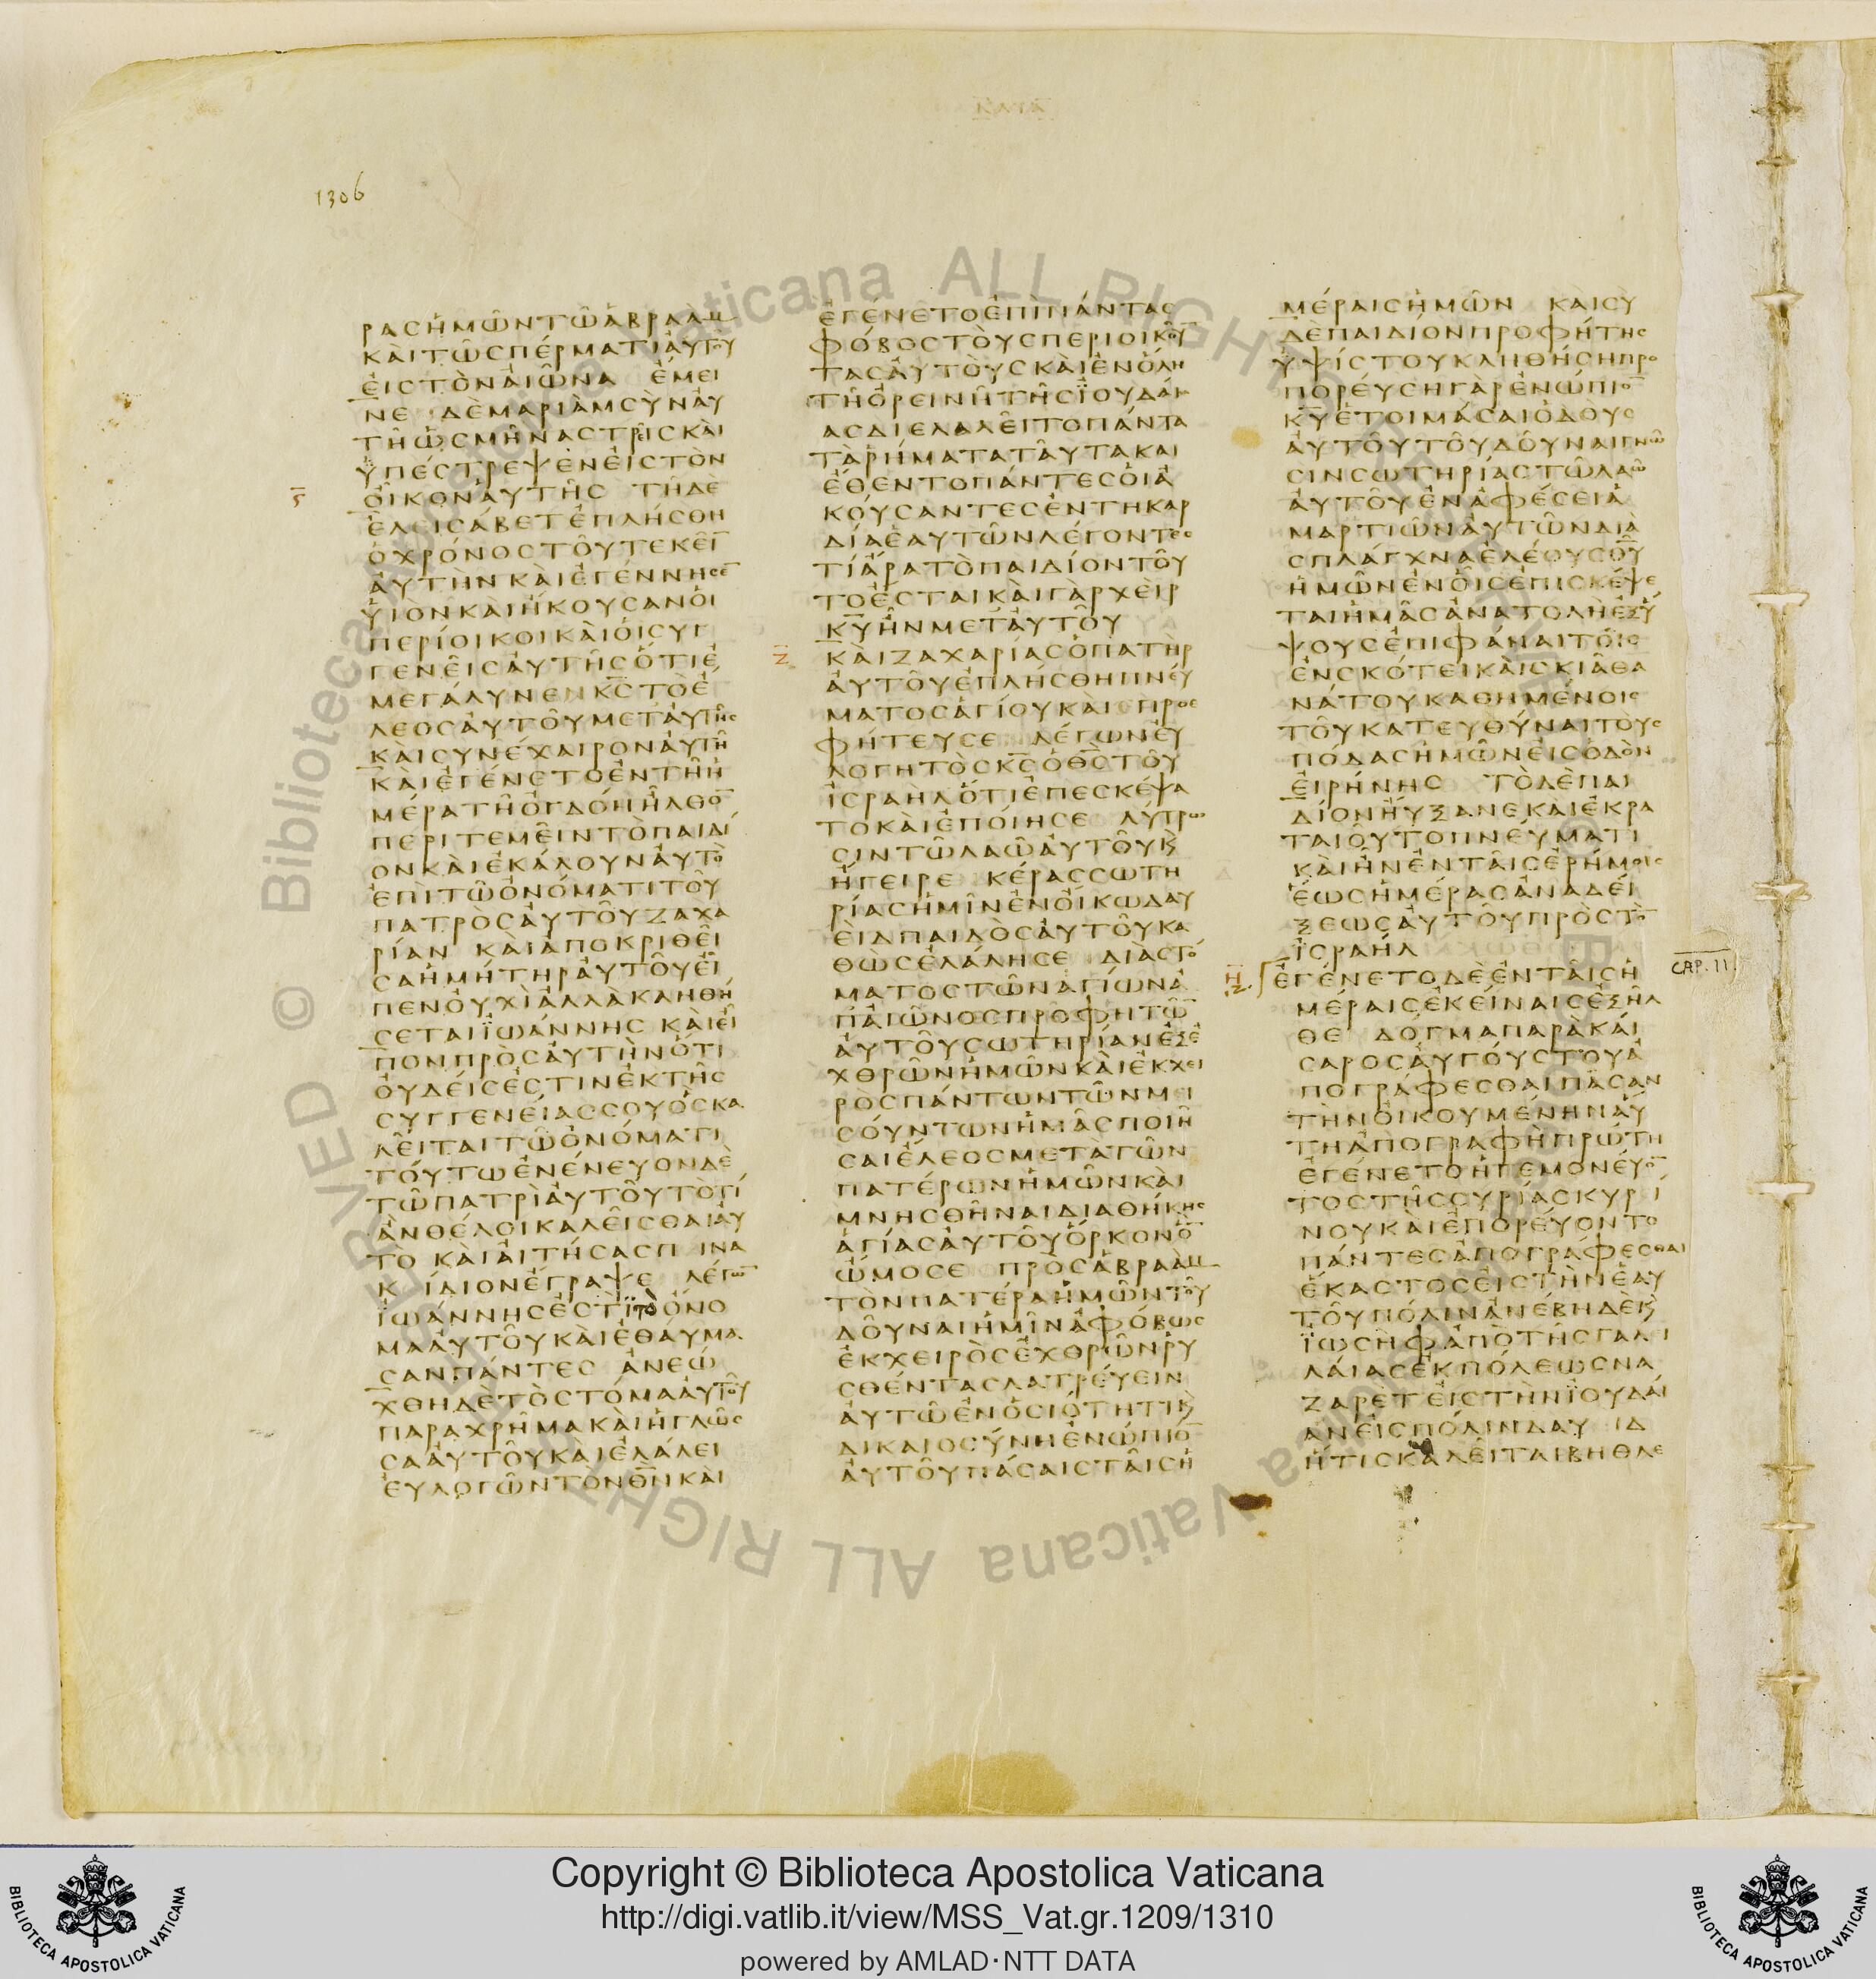 ΛΟΥΚΑ
1306
ΡΑΣΗΜΩΝΤΩΑΒΡΑΑΜ
ΚΑΙΤΩΣΠΕΡΜΑΤΙΑΥΤΟΥ
ΕΙΣΤΟΝΑΙΩΝΑ ΕΜΕΙ
ΝΕ ΔΕΜΑΡΙΑΜΣΥΝΑΥ
ΤΗΩΣΜΗΝΑΣΤΡΕΙΣΚΑΙ
ΥΠΕΣΤΡΕΨΕΝΕΙΣΤΟΝ
Ϛ ΟΙΚΟΝΑΥΤΗΣ ΤΗΔΕ
ΕΛΕΙΣΑΒΕΤΕΠΛΗΣΘΗ
ΟΧΡΟΝΟΣΤΟΥΤΕΚΕΙ̅
ΑΥΤΗΝΚΑΙΕΓΕΝΝΗΣΕ̅
ΥΙΟΝΚΑΙΗΚΟΥΣΑΝΟΙ
ΠΕΡΙΟΙΚΟΙΚΑΙΟΙΣΥΓ
ΓΕΝΕΙΣΑΥΤΗΣΟΤΙΕ
ΜΕΓΑΛΥΝΕΝΚ̅Σ̅ΤΟΕ
ΛΕΟΣΑΥΤΟΥΜΕΤΑΥΤΗΣ
ΚΑΙΣΥΝΕΧΑΙΡΟΝΑΥΤΗ
ΚΑΙΕΓΕΝΕΤΟΕΝΤΗΗ
ΜΕΡΑΤΗΟΓΔΟΗΗΛΘΟ̅
ΠΕΡΙΤΕΜΕΙΝΤΟΠΑΙΔΙ
ΟΝΚΑΙΕΚΑΛΟΥΝΑΥΤΟ
ΕΠΙΤΩΟΝΟΜΑΤΙΤΟΥ
ΠΑΤΡΟΣΑΥΤΟΥΖΑΧΑ
ΡΙΑΝ ΚΑΙΑΠΟΚΡΙΘΕΙ
ΣΑΗΜΗΤΗΡΑΥΤΟΥΕΙ
ΠΕΝΟΥΧΙΑΛΛΑΚΛΗΘΗ
ΣΕΤΑΙΪΩΑΝΝΗΣ ΚΑΙΕΙ
ΠΟΝΠΡΟΣΑΥΤΗΝΟΤΙ
ΟΥΔΕΙΣΕΣΤΙΝΕΚΤΗΣ
ΣΥΓΓΕΝΕΙΑΣΣΟΥΟΣΚΑ
ΛΕΙΤΑΙΤΩΟΝΟΜΑΤΙ
ΤΟΥΤΩΕΝΕΝΕΥΟΝΔΕ
ΤΩΠΑΤΡΙΑΥΤΟΥΤΟΤΙ
ΑΝΘΕΛΟΙΚΑΛΕΙΣΘΑΙΑΥ
ΤΟ ΚΑΙΑΙΤΗΣΑΣΠ ΙΝΑ
Κ ΙΔΙΟΝΕΓΡΑΨΕ ΛΕΓΩ̅
ΪΩΑΝΝΗΣΕΣΤΙΤΟΟΝΟ
ΜΑΑΥΤΟΥΚΑΙΕΘΑΥΜΑ
ΣΑΝΠΑΝΤΕΣ ΑΝΕΩ
ΧΘΗΔΕΤΟΣΤΟΜΑΑΥΤΟΥ
ΠΑΡΑΧΡΗΜΑΚΑΙΗΓΛΩΣ
ΣΑΑΥΤΟΥΚΑΙΕΛΑΛΕΙ
ΕΥΛΟΓΩΝΤΟΝΘ̅Ν̅ΚΑΙ
ΕΓΕΝΕΤΟΕΠΙΠΑΝΤΑΣ
ΦΟΒΟΣΤΟΥΣΠΕΡΙΟΙΚΟΥ̅
ΤΑΣΑΥΤΟΥΣΚΑΙΕΝΟΛΗ
ΤΗΟΡΕΙΝΗΤΗΣΪΟΥΔΑΙ
ΑΣΔΙΕΛΑΛΕΙΤΟΠΑΝΤΑ
ΤΑΡΗΜΑΤΑΤΑΥΤΑΚΑΙ
ΕΘΕΝΤΟΠΑΝΤΕΣΟΙΑ
ΚΟΥΣΑΝΤΕΣΕΝΤΗΚΑΡ
ΔΙΑΕΑΥΤΩΝΛΕΓΟΝΤΕΣ
ΤΙΑΡΑΤΟΠΑΙΔΙΟΝΤΟΥ
ΤΟΕΣΤΑΙΚΑΙΓΑΡΧΕΙΡ
Κ̅Υ̅ΗΝΜΕΤΑΥΤΟΥ
Ζ ΚΑΙΖΑΧΑΡΙΑΣΟΠΑΤΗΡ
ΑΥΤΟΥΕΠΛΗΣΘΗΠΝΕΥ
ΜΑΤΟΣΑΓΙΟΥΚΑΙΕΠΡΟΕ
ΦΗΤΕΥΣΕ ΛΕΓΩΝΕΥ
ΛΟΓΗΤΟΣΚ̅Σ̅ΟΘ̅Σ̅ΤΟΥ
ΙΣΡΑΗΛΟΤΙΕΠΕΣΚΕΨΑ
ΤΟΚΑΙΕΠΟΙΗΣΕ ΛΥΤΡΩ
ΣΙΝΤΩΛΑΩΑΥΤΟΥΚ
ΗΓΕΙΡΕ ΚΕΡΑΣΣΩΤΗ
ΡΙΑΣΗΜΙΝΕΝΟΙΚΩΔΑΥ
ΕΙΔΠΑΙΔΟΣΑΥΤΟΥΚΑ
ΘΩΣΕΛΑΛΗΣΕ ΔΙΑΣΤΟ
ΜΑΤΟΣΤΩΝΑΓΙΩΝΑ
ΠΑΙΩΝΟΣΠΡΟΦΗΤΩ̅
ΑΥΤΟΥΣΩΤΗΡΙΑΝΕΞΕ
ΧΘΡΩΝΗΜΩΝΚΑΙΕΚΧΕΙ
ΡΟΣΠΑΝΤΩΝΤΩΝΜΕΙ
ΣΟΥΝΤΩΝΗΜΑΣΠΟΙΗ
ΣΑΙΕΛΕΟΣΜΕΤΑΤΩΝ
ΠΑΤΕΡΩΝΗΜΩΝΚΑΙ
ΜΝΗΣΘΗΝΑΙΔΙΑΘΗΚΗΣ
ΑΓΙΑΣΑΥΤΟΥΟΡΚΟΝΟ̅
ΩΜΟΣΕ ΠΡΟΣΑΒΡΑΑΜ
ΤΟΝΠΑΤΕΡΑΗΜΩΝΤΟΥ
ΔΟΥΝΑΙΗΜΙΝΑΦΟΒΩΣ
ΕΚΧΕΙΡΟΣΕΧΘΡΩΝΡΥ
ΣΘΕΝΤΑΣΛΑΤΡΕΥΕΙΝ
ΑΥΤΩΕΝΟΣΙΟΤΗΤΙΚ
ΔΙΚΑΙΟΣΥΝΗΕΝΩΠΙΟ̅
ΑΥΤΟΥΠΑΣΑΙΣΤΑΙΣΗ
ΜΕΡΑΙΣΗΜΩΝ ΚΑΙΣΥ
ΔΕΠΑΙΔΙΟΝΠΡΟΦΗΤΗΣ
ΥΨΙΣΤΟΥΚΛΗΘΗΣΗΠΡΟ
ΠΟΡΕΥΣΗΓΑΡΕΝΩΠΙΟ̅
Κ̅Υ̅ΕΤΟΙΜΑΣΑΙΟΔΟΥΣ
ΑΥΤΟΥΤΟΥΔΟΥΝΑΙΓΝΩ
ΣΙΝΣΩΤΗΡΙΑΣΤΩΛΑΩ
ΑΥΤΟΥΕΝΑΦΕΣΕΙΑ
ΜΑΡΤΙΩΝΑΥΤΩΝΔΙΑ
ΣΠΛΑΓΧΝΑΕΛΕΟΥΣΘ̅Υ̅
ΗΜΩΝΕΝΟΙΣΕΠΙΣΚΕΨΕ
ΤΑΙΗΜΑΣΑΝΑΤΟΛΗΕΞΥ
ΨΟΥΣΕΠΙΦΑΝΑΙΤΟΙΣ
ΕΝΣΚΟΤΕΙΚΑΙΣΚΙΑΘΑ
ΝΑΤΟΥΚΑΘΗΜΕΝΟΙΣ
ΤΟΥΚΑΤΕΥΘΥΝΑΙΤΟΥΣ
ΠΟΔΑΣΗΜΩΝΕΙΣΟΔΟΝ
ΕΙΡΗΝΗΣ ΤΟΔΕΠΑΙ
ΔΙΟΝΗΥΞΑΝΕΚΑΙΕΚΡΑ
ΤΑΙΟΥΤΟΠΝΕΥΜΑΤΙ
ΚΑΙΗΝΕΝΤΑΙΣΕΡΗΜΟΙΣ
ΕΩΣΗΜΕΡΑΣΑΝΑΔΕΙ
ΞΕΩΣΑΥΤΟΥΠΡΟΣΤΟ̅
ΙΣΡΑΗΛ
Η ΕΓΕΝΕΤΟΔΕΕΝΤΑΙΣΗ CAP. II.
ΜΕΡΑΙΣΕΚΕΙΝΑΙΣΕΞΗΛ
ΘΕ ΔΟΓΜΑΠΑΡΑΚΑΙ
ΣΑΡΟΣΑΥΓΟΥΣΤΟΥΑ
ΠΟΓΡΑΦΕΣΘΑΙΠΑΣΑΝ
ΤΗΝΟΙΚΟΥΜΕΝΗΝΑΥ
ΤΗΑΠΟΓΡΑΦΗΠΡΩΤΗ
ΕΓΕΝΕΤΟΗΓΕΜΟΝΕΥΟ̅
ΤΟΣΤΗΣΣΥΡΙΑΣΚΥΡΙ
ΝΟΥΚΑΙΕΠΟΡΕΥΟΝΤΟ
ΠΑΝΤΕΣΑΠΟΓΡΑΦΕΣΘΑΙ
ΕΚΑΣΤΟΣΕΙΣΤΗΝΕΑΥ
ΤΟΥΠΟΛΙΝΑΝΕΒΗΔΕΚ
ΪΩΣΗΦΑΠΟΤΗΣΓΑΛΙ
ΛΑΙΑΣΕΚΠΟΛΕΩΣΝΑ
ΖΑΡΕΤΕΙΣΤΗΝΪΟΥΔΑΙ
ΑΝΕΙΣΠΟΛΙΝΔΑΥ ΙΔ
ΗΤΙΣΚΑΛΕΙΤΑΙΒΗΘΛΕ
© Biblioteca Apostolica Vaticana ALL RIGHTS RESERVED
© Biblioteca Apostolica Vaticana ALL RIGHTS RESERVED
Copyright © Biblioteca Apostolica Vaticana
http://digi.vatlib.it/view/MSS_Vat.gr.1209/1310
powered by AMLAD·NTT DATA
BIBLIOTECA APOSTOLICA VATICANA
BIBLIOTECA APOSTOLICA VATICANA